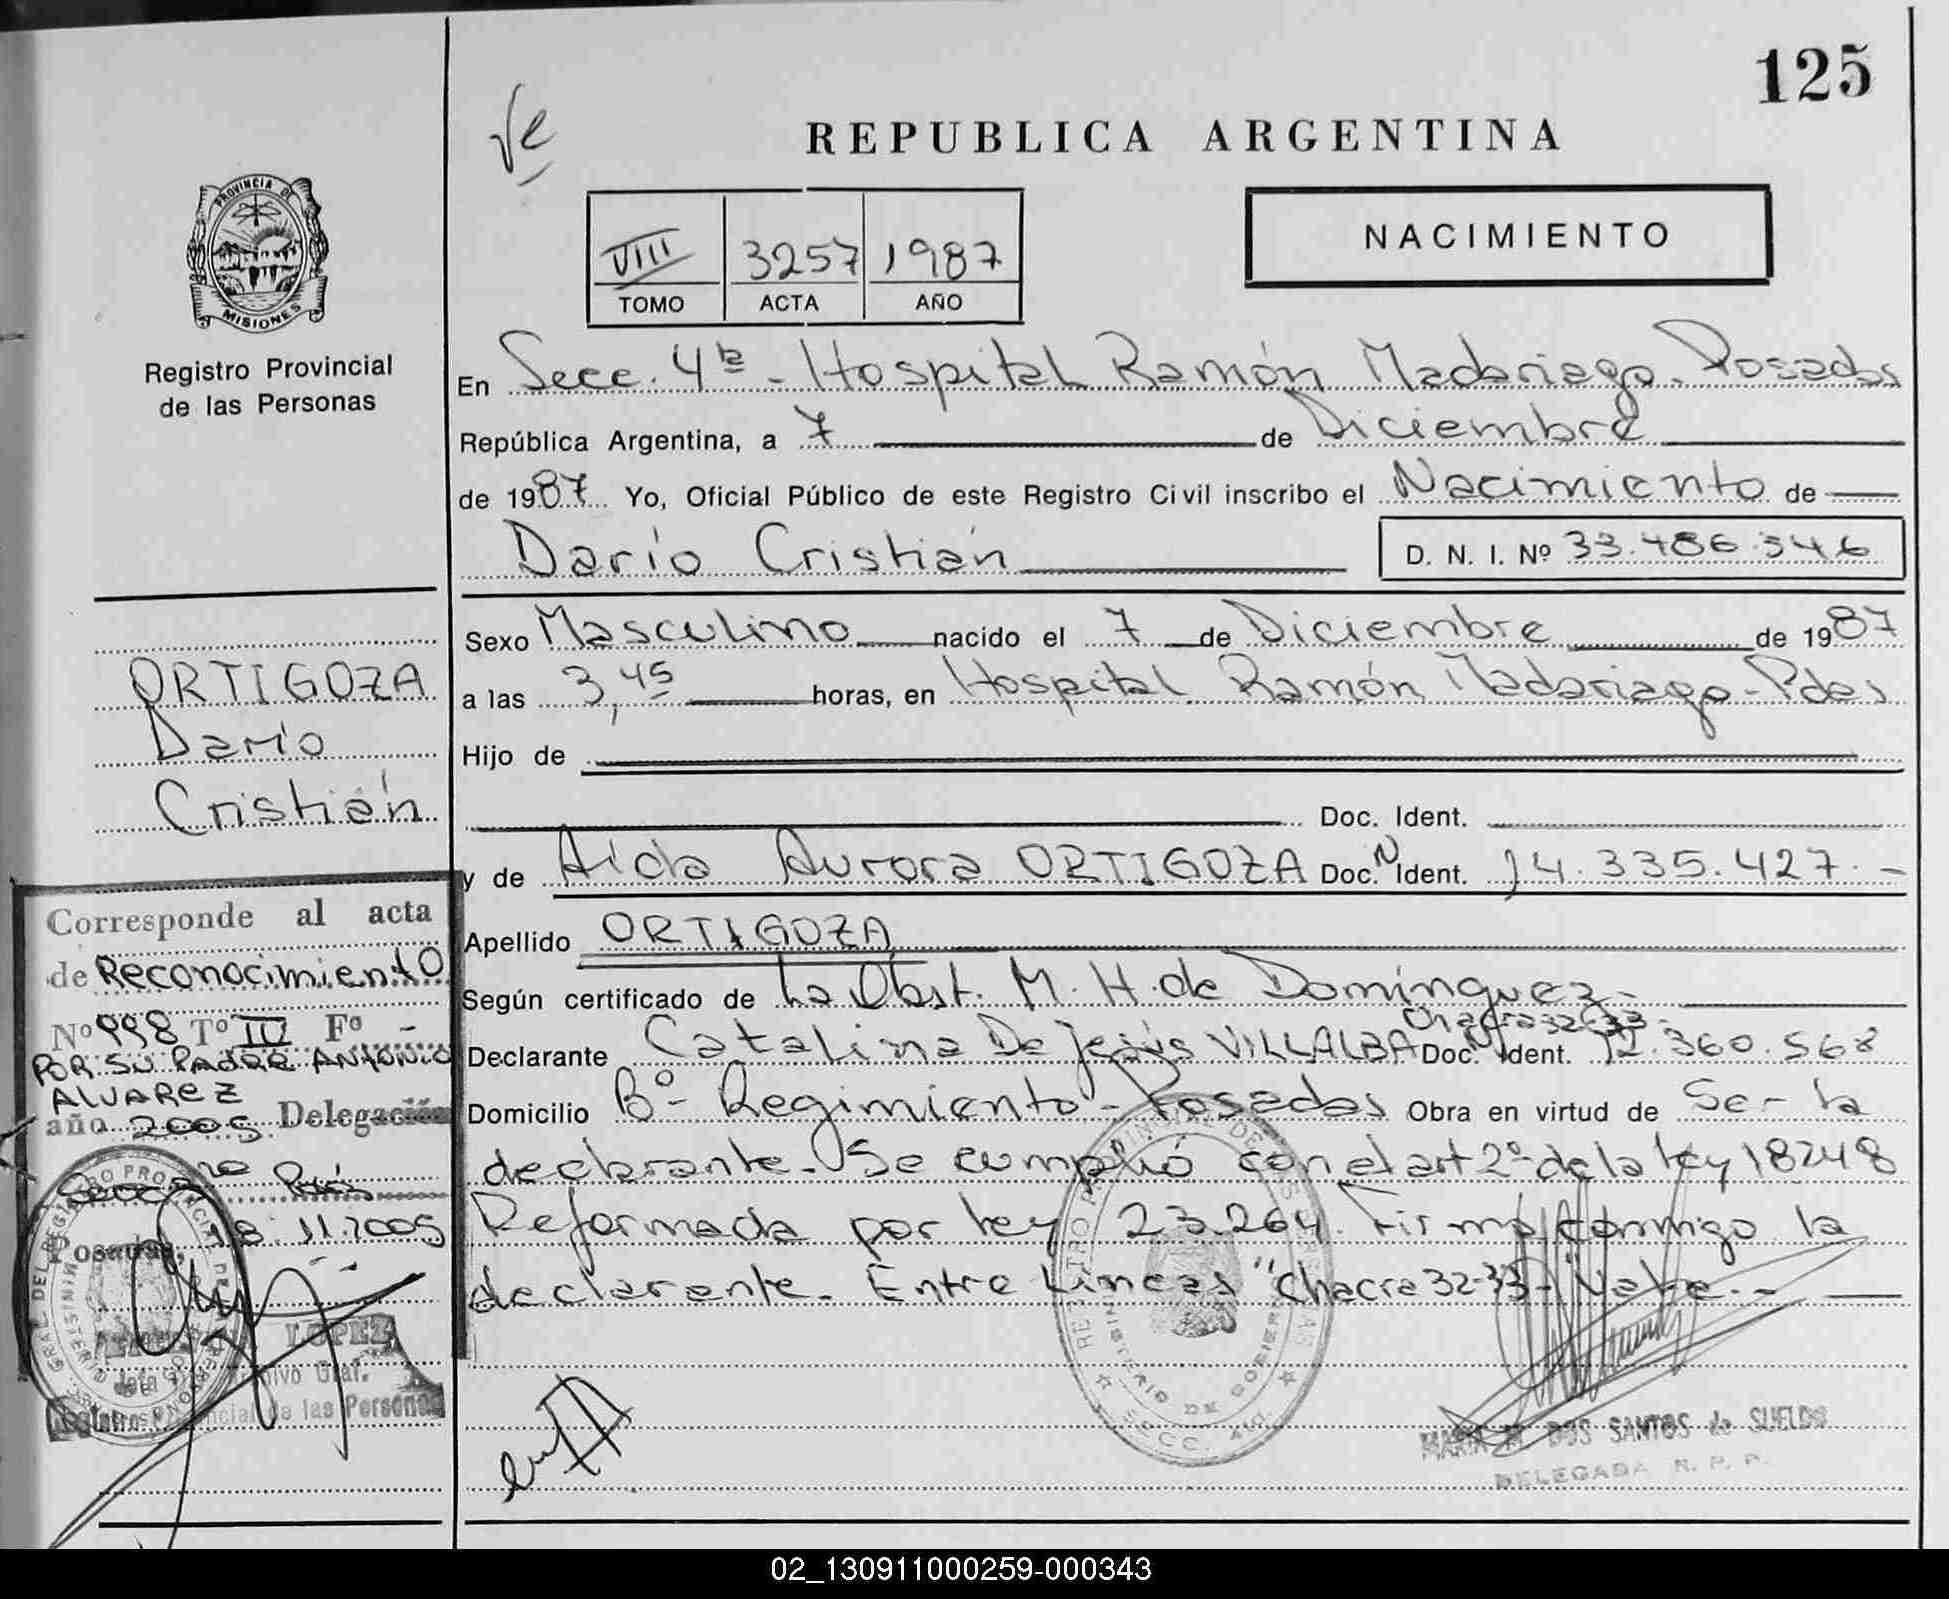 125
REPUBLICA ARGENTINA
NACIMIENTO
VIII 3257 1987
TOMO ACTA AÑO
PROVINCIA DE
MISIONES
Registro Provincial
de las Personas
En Secc. 4ta - Hospital Ramón Madariaga. Posadas
República Argentina, a 7 de Diciembre
de 1987 Yo, Oficial Público de este Registro Civil inscribo el Nacimiento de
Darío Cristián
D. N. I. Nº 33.486.346
Sexo Masculino nacido el 7 de Diciembre de 1987
a las 3,45 horas, en Hospital Ramón Madariaga - Pdas
Hijo de
Doc. Ident.
y de Aida Aurora ORTIGOZA Doc. N Ident. 14.335.427.-
Apellido ORTIGOZA
Según certificado de La Obst. M. H. de Domínguez -
Chacra 32-33-
Declarante Catalina De Jesús VILLALBA Doc. N Ident. 12.360.568
Domicilio Bº - Regimiento - Posadas Obra en virtud de Ser la
declarante. Se cumplió con el art 2º de la ley 18248
Reformada por ley 23.264. Firma conmigo la
declarante. Entre Lineas "Chacra 32-33- Vale.-
ORTIGOZA
Darío
Cristián
Corresponde al acta
de Reconocimiento
Nº 998 Tº III Fº -
POR SU PADRE ANTONIO
ALVAREZ
año 2005 Delegación
Posadas, 18.11.2005
LOPEZ
Archivo Graf.
Registro Provincial de las Personas
REGISTRO PROVINCIAL DE LAS PERSONAS
MINISTERIO DE GOBIERNO
SECC. 4ta
MARIA M DOS SANTOS de SUELDO
DELEGADA R. P. P.
02_130911000259-000343